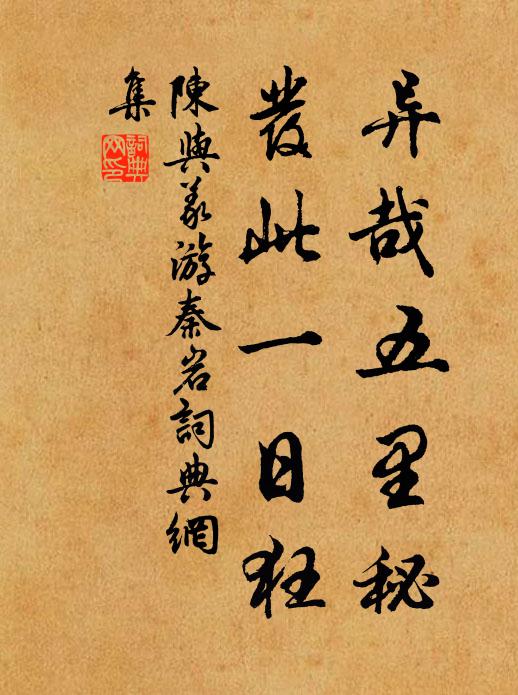 异哉五里秘
發此一日狂
陳與义游秦岩詞典網
集
詞典
网印